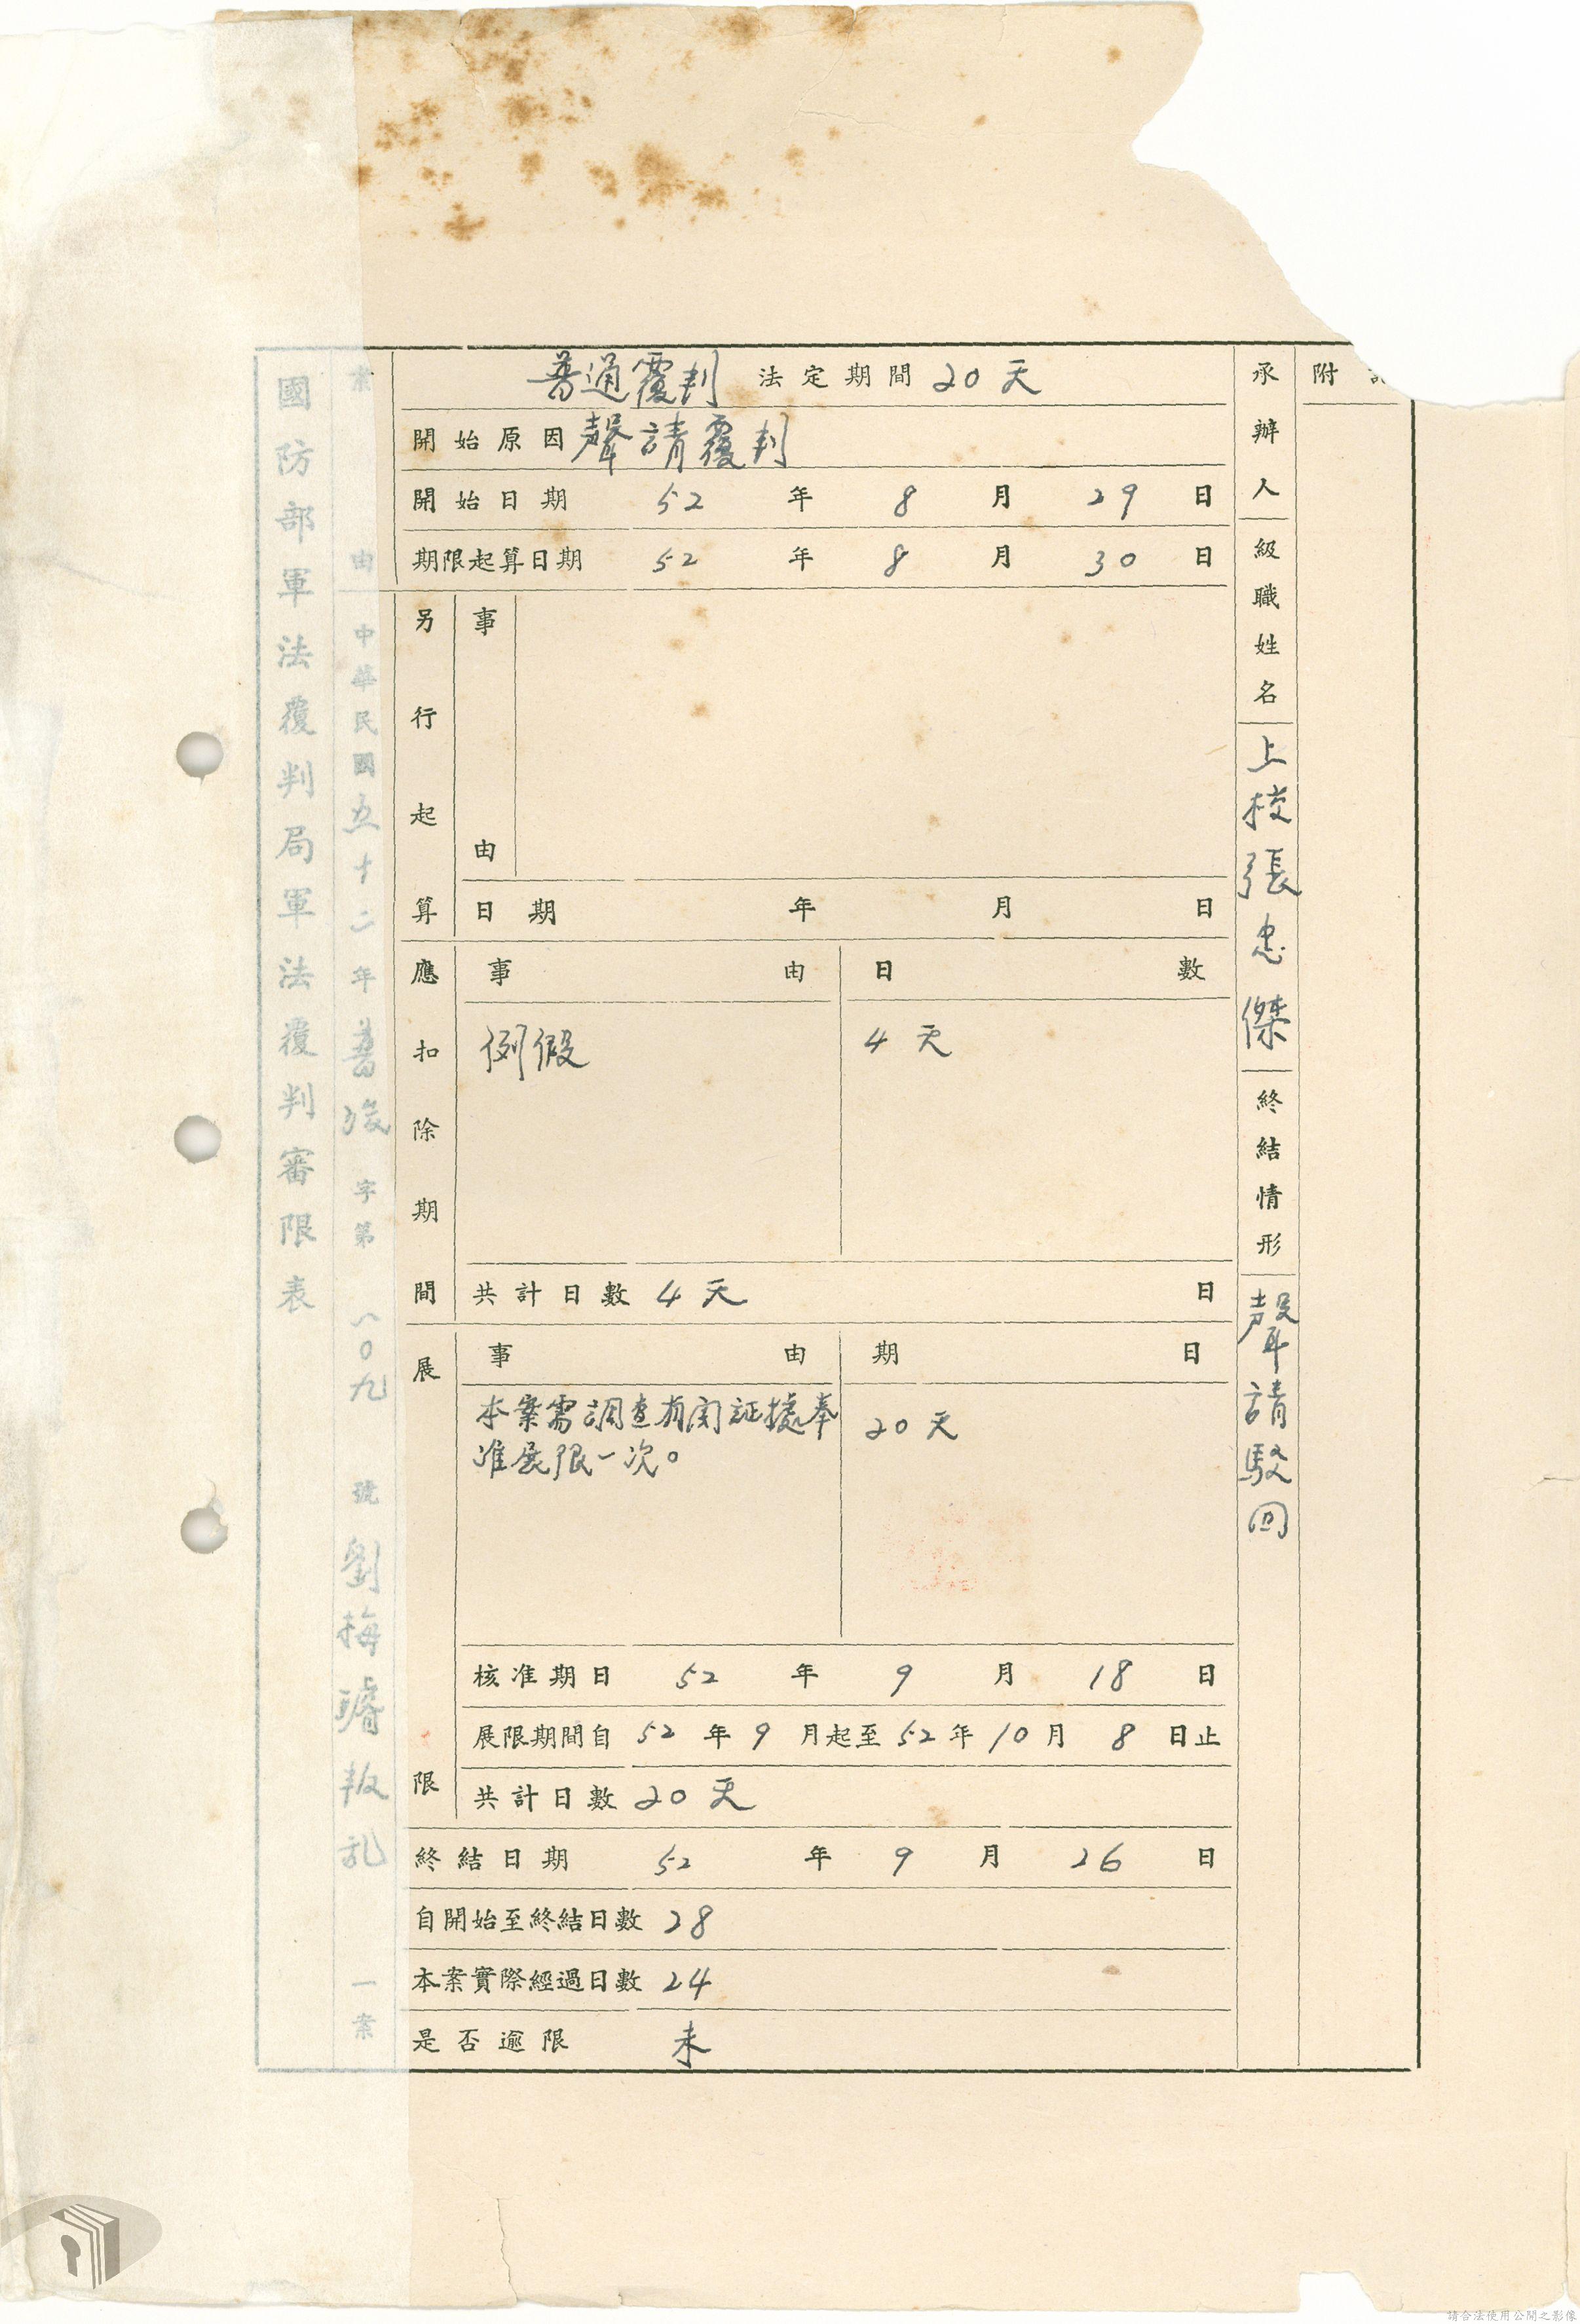 國防部軍法覆判局軍法覆判審限表
案由 中華民國五十二年普 字第 八〇九 號 劉梅 叛乱 一案
普通覆判 法定期間 20天
開始原因 聲請覆判
開始日期 52 年 8 月 29 日
期限起算日期 52 年 8 月 30 日
另行起算
事由
日期 年 月 日
應扣除期間
事由 日數
例假 4天
共計日數 4天 日
展限
事由 期日
本案需調查有関証據奉 20天
准展限一次。
核准期日 52 年 9 月 18 日
展限期間自 52 年 9 月起至 52 年 10 月 8 日止
共計日數 20天
終結日期 52 年 9 月 26 日
自開始至終結日數 28
本案實際經過日數 24
是否逾限 未
承辦人級職姓名 上校張忠傑 終結情形 聲請駁回
附
請合法使用公開之影像